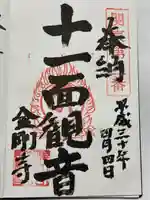 奉納
十一面観音
金剛寺
平成三十年
四月四日